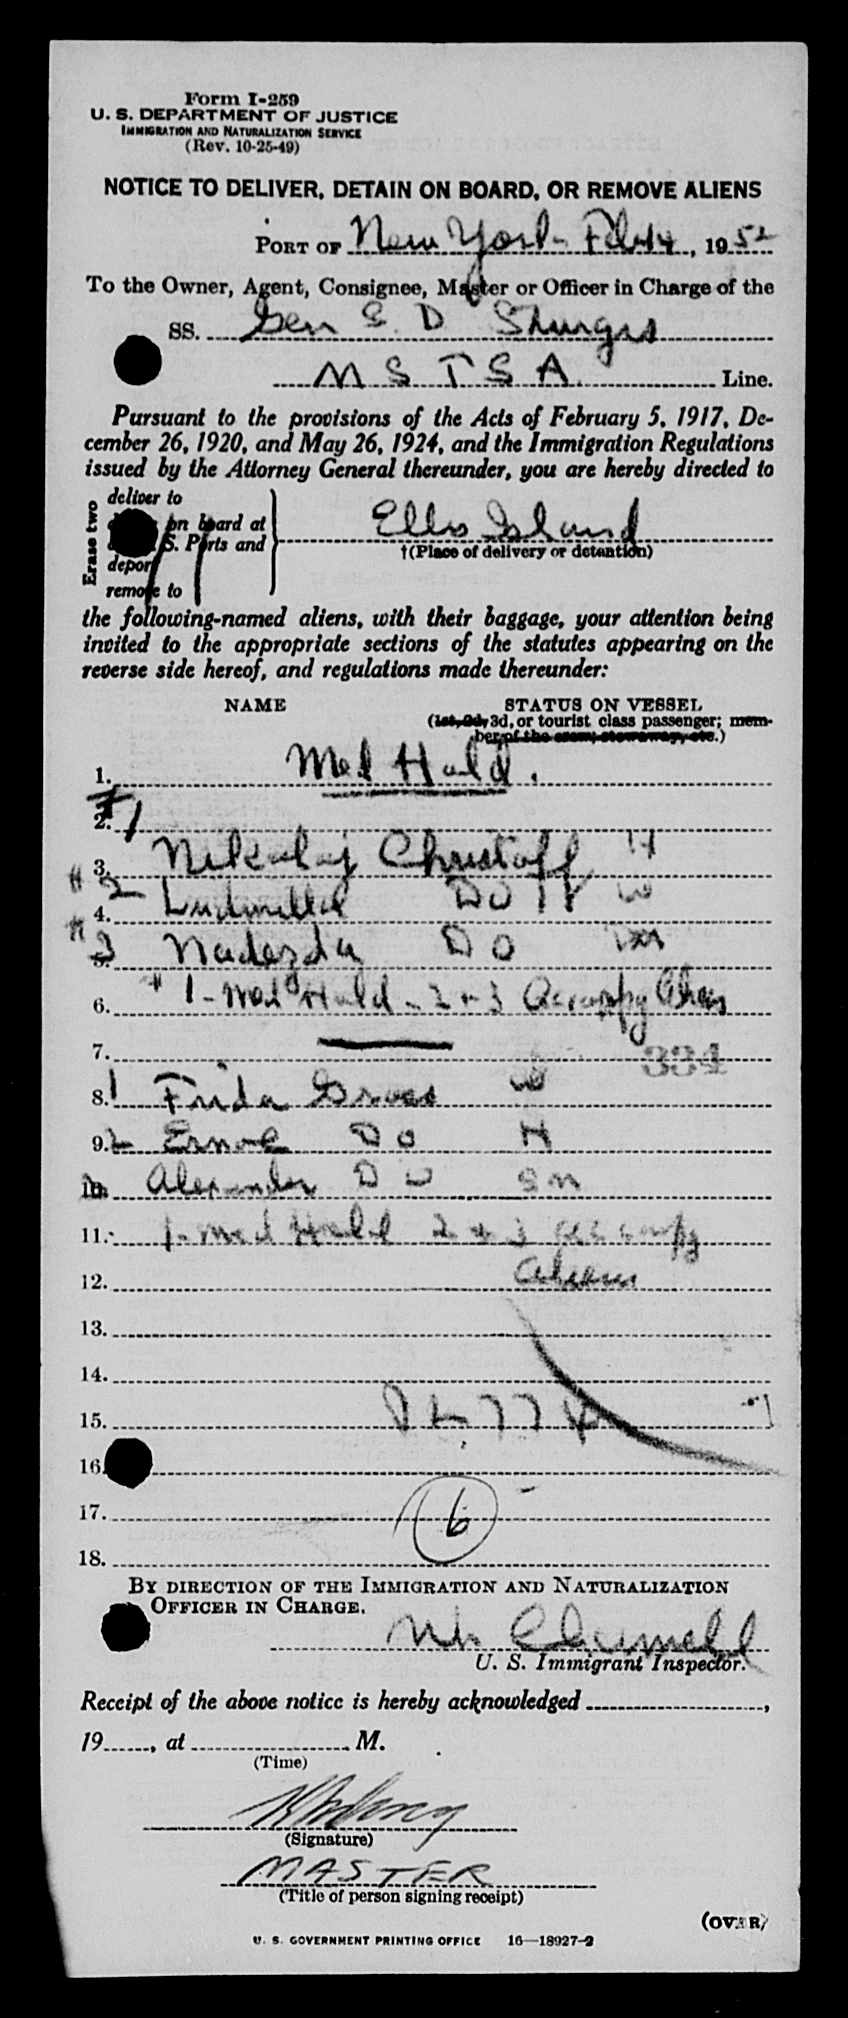 Form I-259
U. S. DEPARTMENT OF JUSTICE
IMMIGRATION AND NATURALIZATION SERVICE
(Rev. 10-25-49)
NOTICE TO DELIVER, DETAIN ON BOARD, OR REMOVE ALIENS
PORT OF New York Feb 14, 1952
To the Owner, Agent, Consignee, Master or Officer in Charge of the
SS. Gen S. D Sturgis
M S T S A. Line.
Pursuant to the provisions of the Acts of February 5, 1917, De-
cember 26, 1920, and May 26, 1924, and the Immigration Regulations
issued by the Attorney General thereunder, you are hereby directed to
Erase two
deliver to
on board at
S. Ports and
depor
remove to
Ellis Island
†(Place of delivery or detention)
the following-named aliens, with their baggage, your attention being
invited to the appropriate sections of the statutes appearing on the
reverse side hereof, and regulations made thereunder:
NAME STATUS ON VESSEL
(1st, 2d, 3d, or tourist class passenger; mem-
ber of the crew, stowaway, etc.)
1. Med Hold.
2. #1
3. Nikolaj Christoff H
# 2 4. Ludmilla Do W
# 3 5. Nadezda Do
6. # 1 - Med Hold - 2 + 3 Accompy Aliens
7. 334
8. 1 Frida Gross W
9. 2 Ernoe Do H
10. Alexander Do Sn
11. 1- Med Hold 2 + 3 accompy
12. Aliens
13.
14.
15.
16.
17. 6
18.
BY DIRECTION OF THE IMMIGRATION AND NATURALIZATION
OFFICER IN CHARGE.
U. S. Immigrant Inspector.
Receipt of the above notice is hereby acknowledged ,
19 , at . M.
(Time)
(Signature)
MASTER
(Title of person signing receipt)
(OVER)
U. S. GOVERNMENT PRINTING OFFICE 16—18927-2